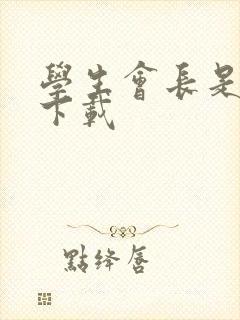 學生會長是
下載
點绛唇